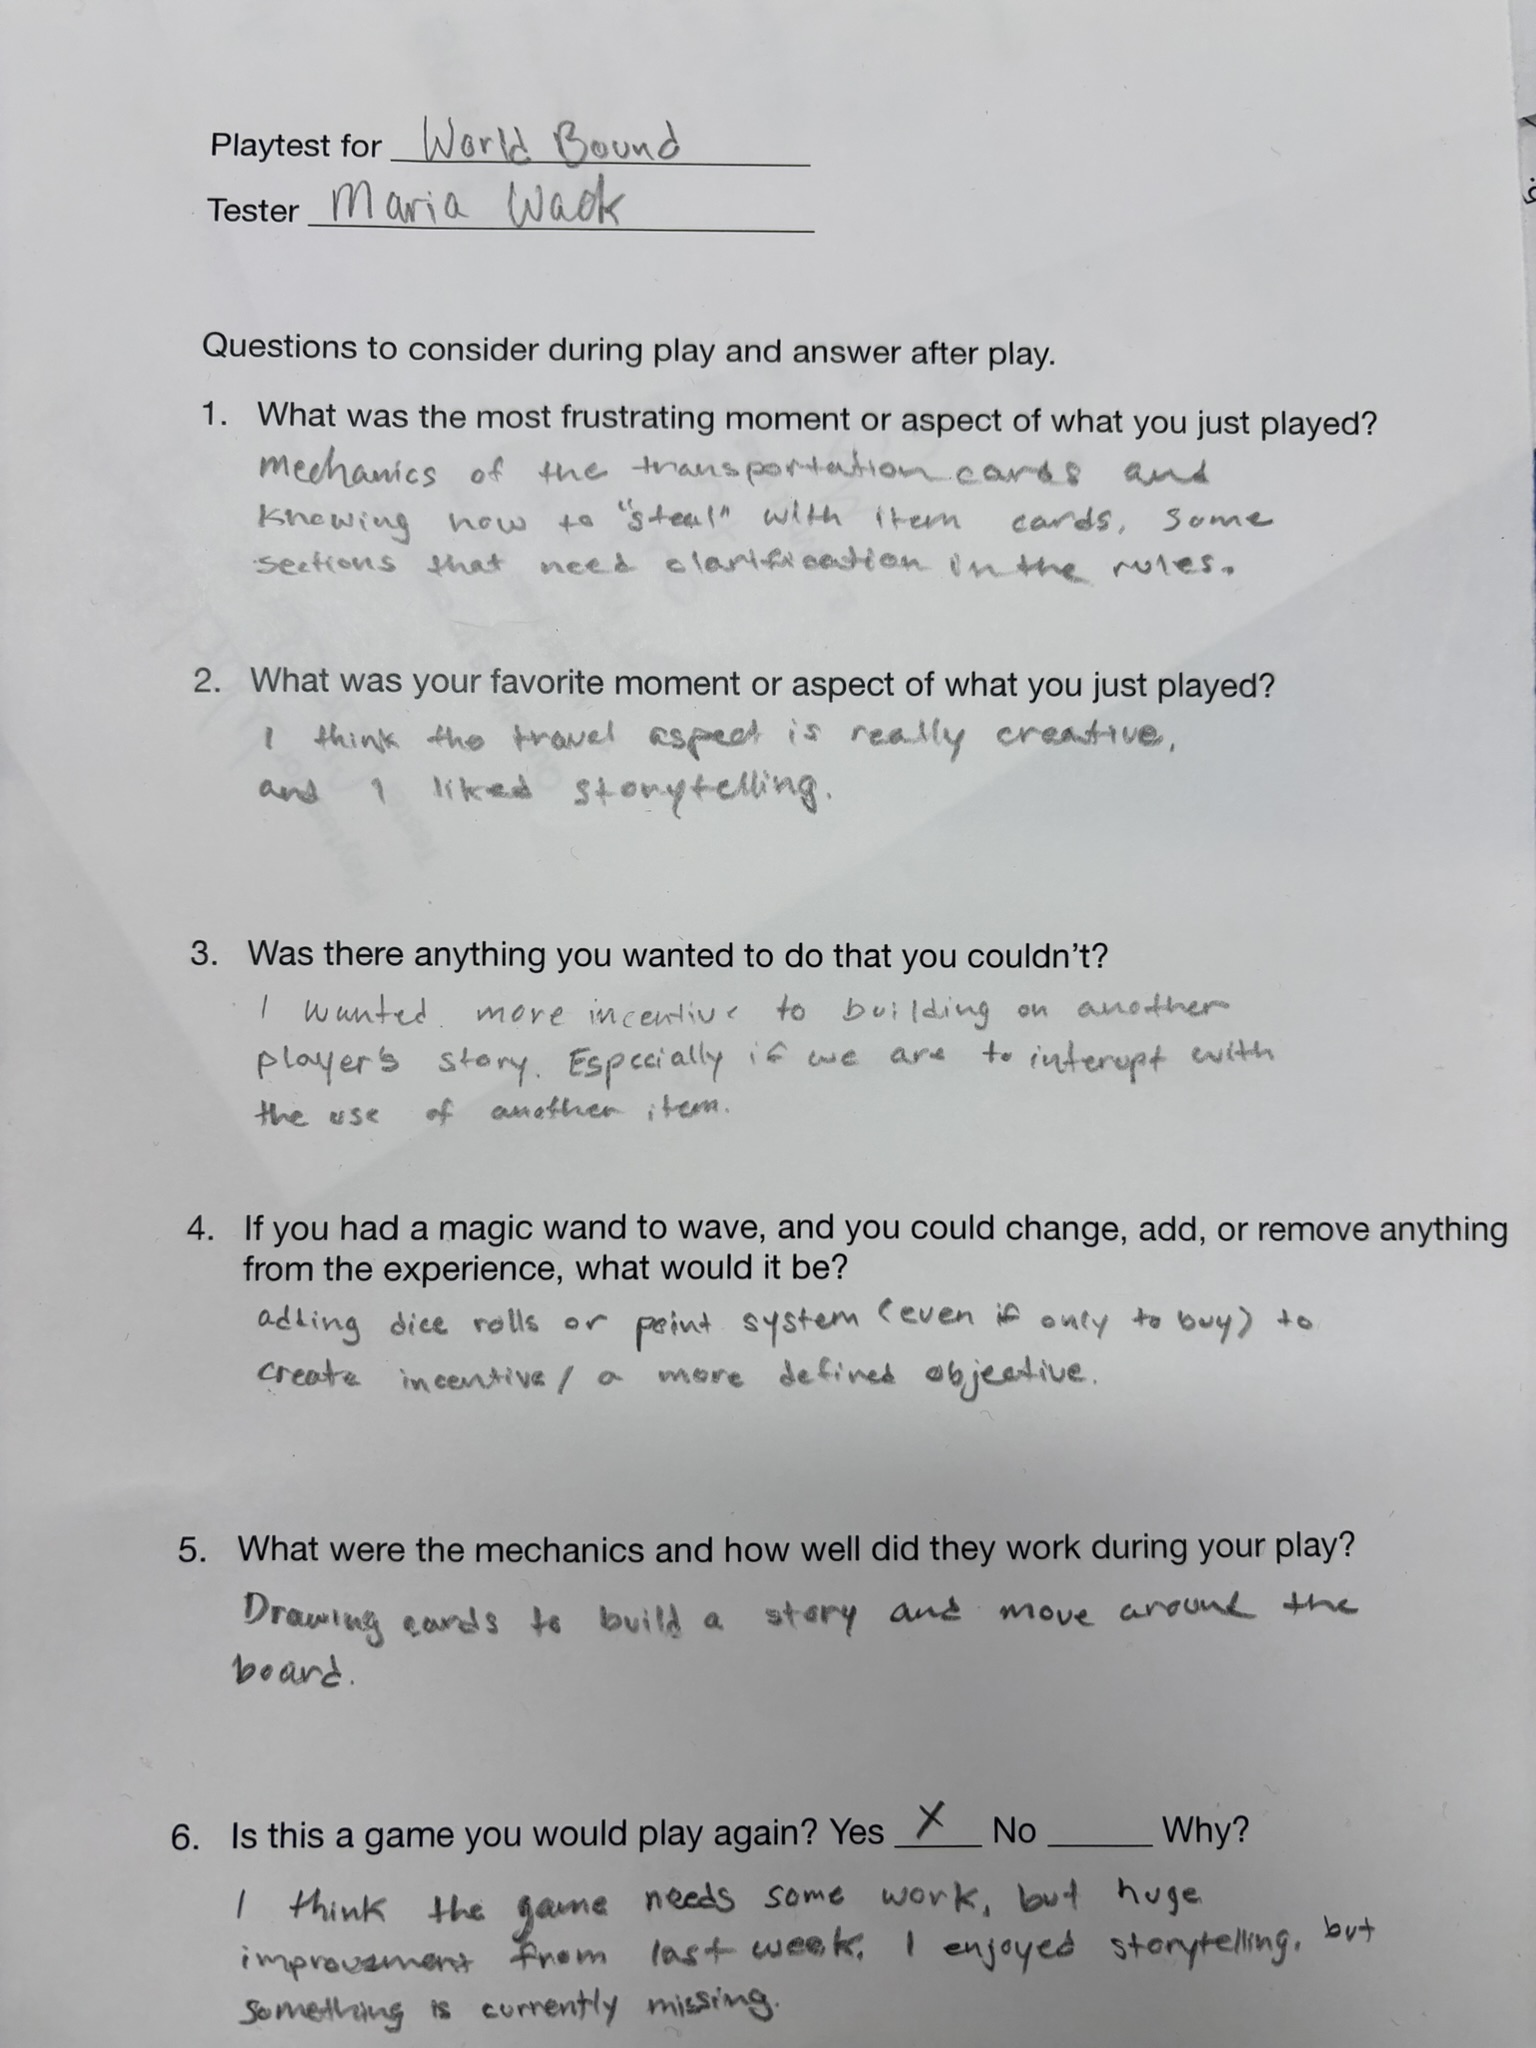 Playtest for World Bound
Tester Maria Wack
Questions to consider during play and answer after play.
1. What was the most frustrating moment or aspect of what you just played?
Mechanics of the transportation cards and
knowing how to "steal" with item cards, some
sections that need clarification in the rules.
2. What was your favorite moment or aspect of what you just played?
I think the travel aspect is really creative,
and I liked storytelling.
3. Was there anything you wanted to do that you couldn't?
I wanted more incentive to building on another
player's story. Especially if we are to interupt with
the use of another item.
4. If you had a magic wand to wave, and you could change, add, or remove anything
from the experience, what would it be?
adding dice rolls or point system (even if only to buy) to
create incentive / a more defined objective.
5. What were the mechanics and how well did they work during your play?
Drawing cards to build a story and move around the
board.
6. Is this a game you would play again? Yes X No ______ Why?
I think the game needs some work, but huge
improvement from last week. I enjoyed storytelling, but
something is currently missing.